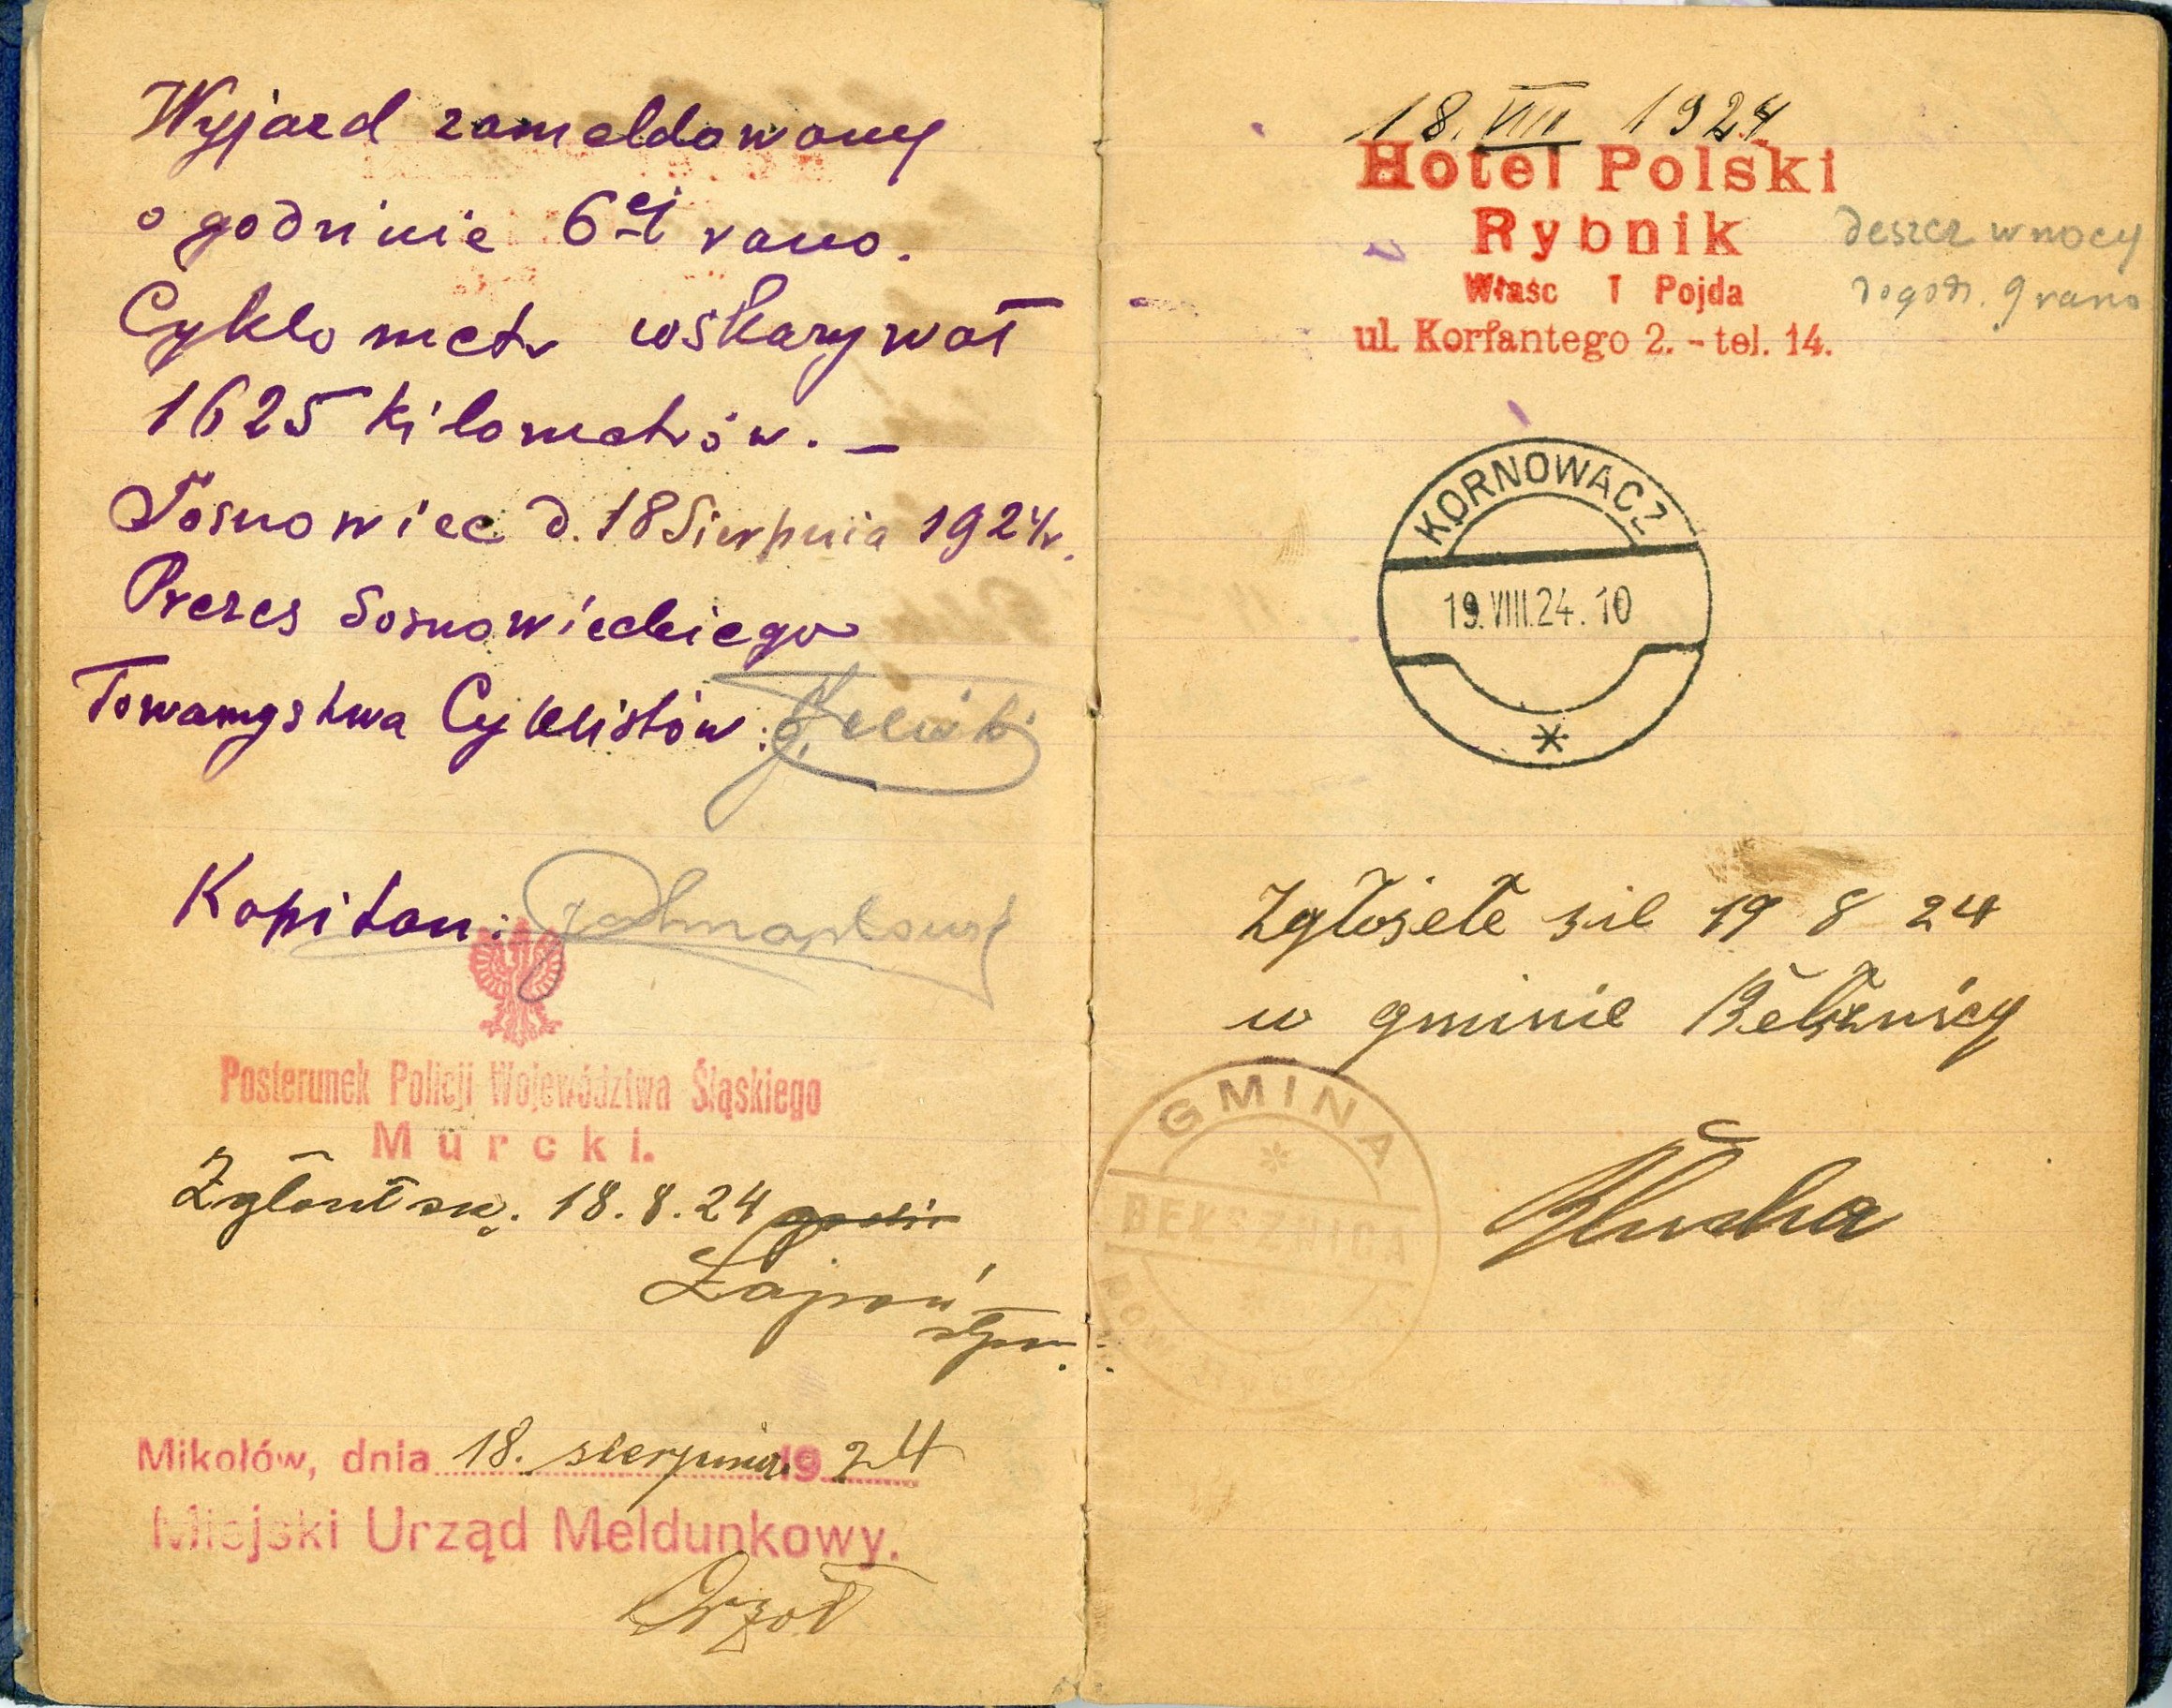 Wyjazd zameldowany
o godzinie 6ej rano.
Cyklometr wskazywał
1625 kilometrów. —
Sosnowiec d. 18 Sierpnia 1924r.
Prezes Sosnowieckiego
Towarzystwa Cyklistów:
Kapitan:
Posterunek Policji Województwa Śląskiego
Murcki.
Zgłosił się. 18.8.24 godzin
Mikołów, dnia 18. sierpnia 1924
Miejski Urząd Meldunkowy.
18. VIII 1924
Hotel Polski
Rybnik
Właśc T Pojda
ul. Korfantego 2. - tel. 14.
deszcz w nocy
do godz. 9 rano
KORNOWACZ
19.VIII.24.10
Zgłosiłe sie 19 8 24
w gminie Bełsznicy
GMINA
BEŁSZNICA